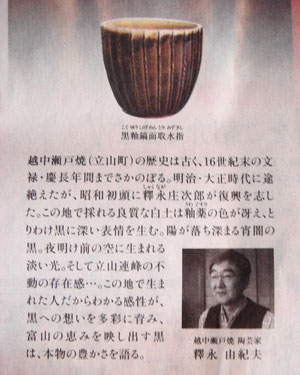 こくゆうしのぎめんとりみずさし
黒釉鎬面取水指
越中瀬戸焼（立山町）の歴史は古く、16世紀末の文
禄・慶長年間までさかのぼる。明治・大正時代に途
しゃくなが
絶えたが、昭和初頭に釋永庄次郎が復興を志し
うわぐすり
た。この地で採れる良質な白土は釉薬の色が冴え、と
りわけ黒に深い表情を生む。陽が落ち深まる宵闇の
黒。夜明け前の空に生まれる
淡い光。そして立山連峰の不
動の存在感…。この地で生ま
れた人だからわかる感性が、
黒への想いを多彩に育み、
富山の恵みを映し出す黒
は、本物の豊かさを語る。
越中瀬戸焼 陶芸家
釋永 由紀夫